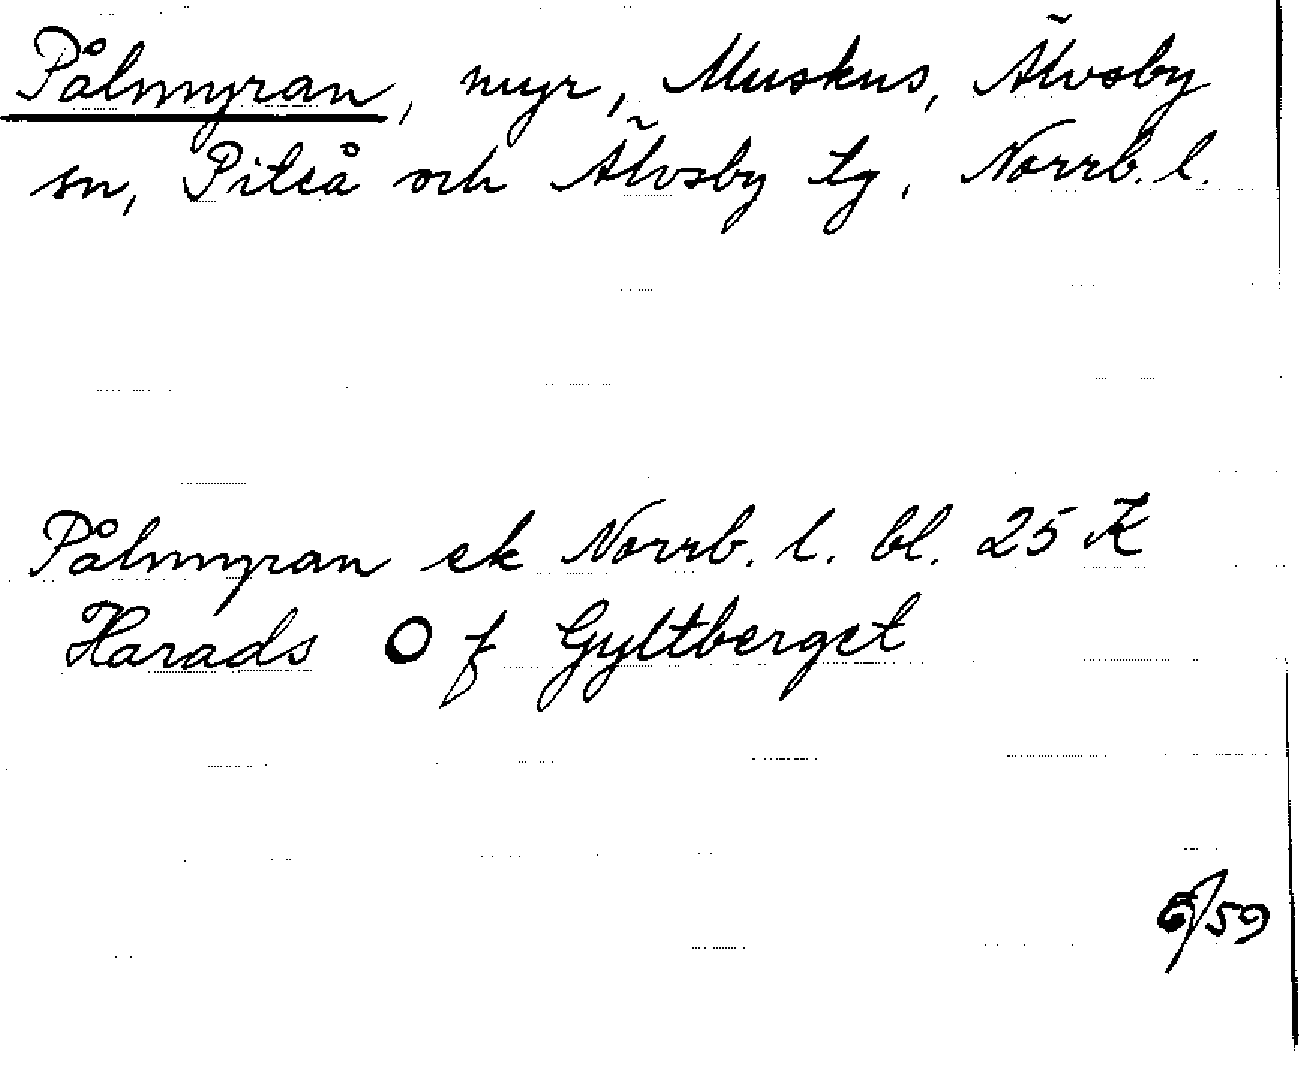 Pålmyran, myr, Muskus, Älvsby
sn, Piteå och Älvsby tg, Norrb. l.
Pålmyran ek Norrb. l. bl. 25 K
Harads O f Gyltberget
6/59